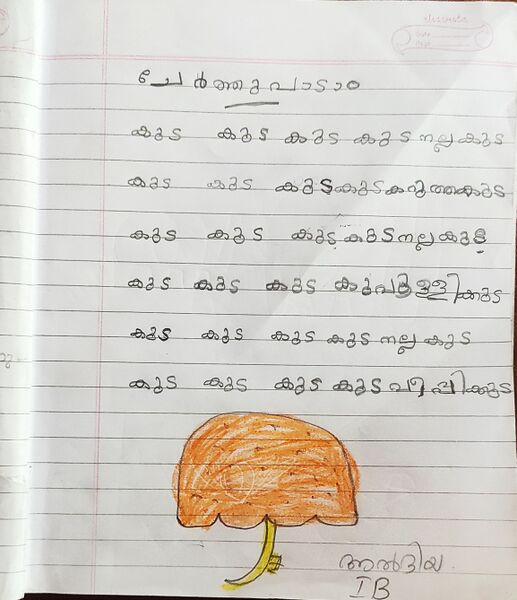 ചേർത്തുപാടാം
കുട കുട കുട കുട നല്ല കുട
കുട കുട കുട കുട കറുത്തകുട
കുട കുട കുട കുട നല്ല കുട
കുട കുട കുട കുപുള്ളിക്കുട
കുട കുട കുട കുട നല്ല കുട
കുട കുട കുട കുട
അൽദിയ
IB